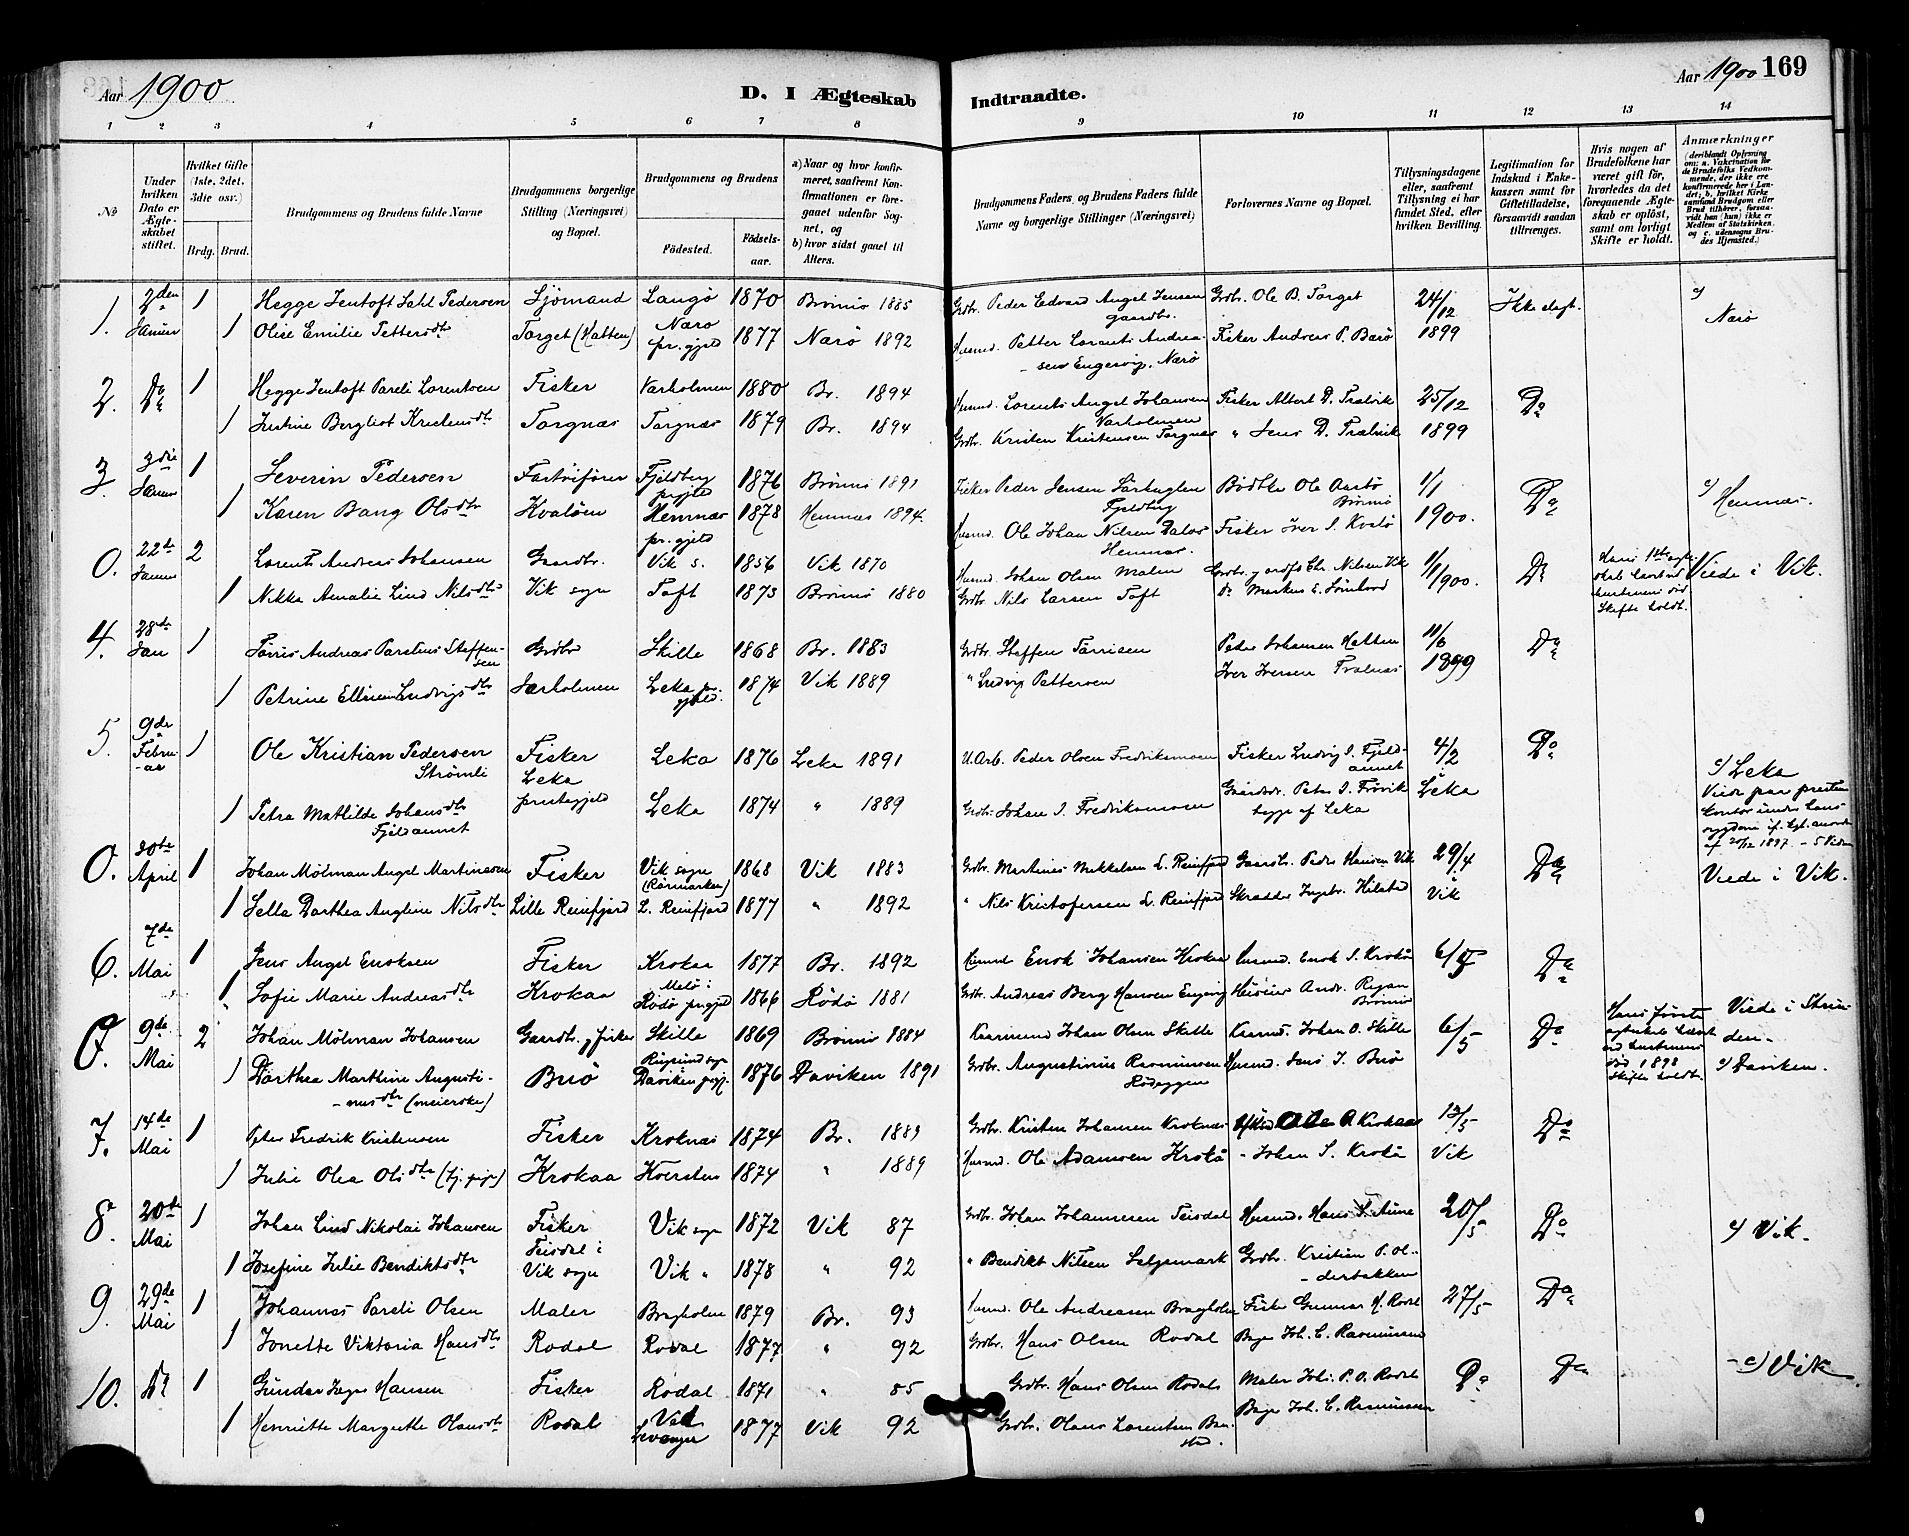 Aar 1900
D. I Ægteskab Indtraadte.
Aar 1900 169
1 2 3 4 5 6 7 8 9 10 11 12 13 14
No
Under hvilken Dato er Ægteskabet stiftet.
Hvilket Gifte (1ste, 2det, 3die osv.)
Brdg. Brud.
Brudgommens og Brudens fulde Navne
Brudgommens borgerlige Stilling (Næringsvei) og Bopæl.
Brudgommens og Brudens
Fødested.
Fødselsaar.
a) Naar og hvor konfirmeret, saafremt Konfirmationen er foregaaet udenfor Sognet, og
b) hvor sidst gaaet til Alters.
Brudgommens Faders og Brudens Faders fulde Navne og borgerlige Stillinger (Næringsvei)
Forlovernes Navne og Bopæl.
Tillysningsdagene eller, saafremt Tillysning ei har fundet Sted, efter hvilken Bevilling.
Legitimation for Indskud i Enkekassen samt for Giftetilladelse, forsaavidt saadan tiltrænges.
Hvis nogen af Brudefolkene har været gift før, hvorledes da det foregaaende Ægteskab er opløst, samt om lovligt Skifte er holdt.
Anmærkninger
(deriblandt Oplysning om: a. Vakcination for de Brudefolks Vedkommende, der ikke ere konfirmerede her i Landet; b. hvilket Kirkesamfund Brudgom eller Brud tilhører, forsaavidt han (hun) ikke er Medlem af Statskirken, og c. udensogns Brudes Hjemsted.)
1. 2den Januar 1 Hegge Jentoft Sahl Pedersen Sjømand Langø 1870 Brønnø 1885 Grdbr. Peder Edvard Angel Jensen gaardbr. Grdbr. Ole B. Torget 24/12 Ikke
1 Olise Emilie Pettersdtr Torget (Hatten) Nærø pr.gjeld 1877 Nærø 1892 Husmd. Petter Lorents Andreasen Engesvig, Nærø Fisker Andreas P. Barø 1899 c) Nærø
2. Do 1 Hegge Jentoft Pareli Lorentsen Fisker Varholmen 1880 Br. 1894 Husmd. Lorents Angel Johansen Varholmen Fisker Albert D. Trælvik 25/12 Do
1 Justine Bergliot Kristensdtr Torgnæs Torgnæs 1879 Br. 1894 Grdbr. Kristen Kristensen Torgnæs " Jens D. Trælvik 1899
3. 3die Januar 1 Severin Pedersen Fartøifører Fjeldberg prgjeld 1876 Brønnø 1891 Fisker Peder Jensen Fjeldberg Bødtker Ole Aastø Brønnø 1/1 Do
1 Karen Bang Olsdtr Kvaløen Hemnæs pr.gjeld 1878 Hemnæs 1894. Husmd. Ole Johan Nilsen Dalos Hemnæs. Fisker Iver S. Kvalø 1900. c) Hemnæs.
0. 22de Januar 2 Lorents Andreas Johansen Gaardbr. Vik s. 1856 Vik 1870 Husmd. Johan Olsen Malm Grdbr. og ordf. Chr. Nilsen Vik 1/1 1900. Do Hans 1ste ægteskab hævet ved hustruens død Skifte holdt. Viede i Vik.
1 Nikka Amalie Lind Nilsdtr Vik sogn Toft 1873 Brønnø 1880 Grdbr. Nils Larsen Toft Do Markus E.
4. 28de Jan 1 Tørris Andreas Parelius Steffensen Grdbr Skille 1868 Br. 1883 Grdbr. Steffen Tørrisen Peder Johansen Hatten 11/6 Do
1 Petrine Ellenr Ludvigsdtr Leka pr.gjeld. 1874 Vik 1889 " Ludvig Pettersen Iver Iversen Trælnæs 1899
5. 9de Februar 1 Ole Kristian Pedersen Strømli Fisker Leka 1876 Leka 1891 U.Arb. Peder Olsen Fredriksmoen Fisker Ludvig J. Fjeldannet 4/2 Do
1 Petra Mathilde Johansdtr Fjeldannet Leka prestegjeld Leka 1874 " 1889 Grdbr. Johan J. Fredriksmoen Gaardbr. Peter J. Frøvik begge af Leka Leka c) Leka Viede paa presten kontor
0. 30te April 1 Johan Mølman Angel Martinussen Fisker Vik sogn (Rørmarken) 1868 Vik 1883 Grdbr. Martinus Mikkelsen L. Reinfjord Gaardbr. Peder Hansen Vik 29/4 Do Viede i Vik.
1 Sella Dorthea Angline Nilsdtr Lille Reinfjord L. Reinfjord 1877 " 1892 " Nils Kristofersen L. Reinfjord Skrædder Ingebr. Hilstad Vik
6. 7de Mai 1 Jens Angel Enoksen Fisker Krokaa 1877 Br. 1892 Husmd Enok Johansen Krokaa Husmd. Enok J. Krokå 6/5 Do
1 Sofie Marie Andreasdtr Krokaa Melø i Rødø prgjeld 1866 Rødø 1881 Grdbr. Andreas Berg Hansen Engavig Andr. Rigan Brønnø
0. 9de Mai 2 Johan Mølman Johansen Gaardbr. og fisker Skille 1869 Brønnø 1884 Kaarmand Johan Olsen Skille Kaarmd. Johan O. Skille 6/5 Do Hans første ægteskab hævet ved hustruens død 1898 Skifte holdt. Viede i
1 Dorthea Marthine Augustinusdtr (meierske) Buø Rugsund sogn Daviken prgj. 1876 Daviken 1891 Grdbr. Augustinius Rasmussen Rødeggen Husmd. Jens J. Buø c) Daviken.
7. 14de Mai 1 Peter Fredrik Kristensen Fisker Kroknæs 1874 Br. 1889 Grdbr. Kristen Johansen Kroknæs Ole A. Krokaa 13/5 Do
1 Julie Olea Olsdtr (tj. pige) Krokaa 1874 " 1889 Husmd. Ole Adamsen Krokå - Johan S. Krokå Vik
8. 20de Mai 1 Johan Lind Nikolai Johansen Fisker Vik sogn 1872 Vik 87 Grdbr. Johan Johannesen Teisdal Husmd. Hans Aune 20/5 Do c) Vik.
1 Josefine Julie Bendiktsdtr Teisdal i Vik sogn Vik " 1878 " 92 " Bendikt Nilsen Saljemark Grdbr. Kristian P. Olderbakken
9. 29de Mai 1 Johannes Pareli Olsen Maler Bragholm 1879 Br. 93 Husmd. Ole Andreasen Bragholm Fisker Gunnar H. Rodal 27/5 Do
1 Jonette Viktoria Hansdtr Rodal Rodal 1877 " 92 Grdbr. Hans Olsen Rodal Bager Joh. C. Rasmussen
10. Do 1 Gunder Hansen Fisker Rodal 1871 " 85 Grdbr. Hans Olsen Rodal Maler Joh. P. O. Rodal Do Do c) Vik.
1 Henriette Margrethe Olausdtr Rodal Vik 1877 Vik 92 Grdbr. Olaus Lorentsen Bager Joh. C. Rasmussen